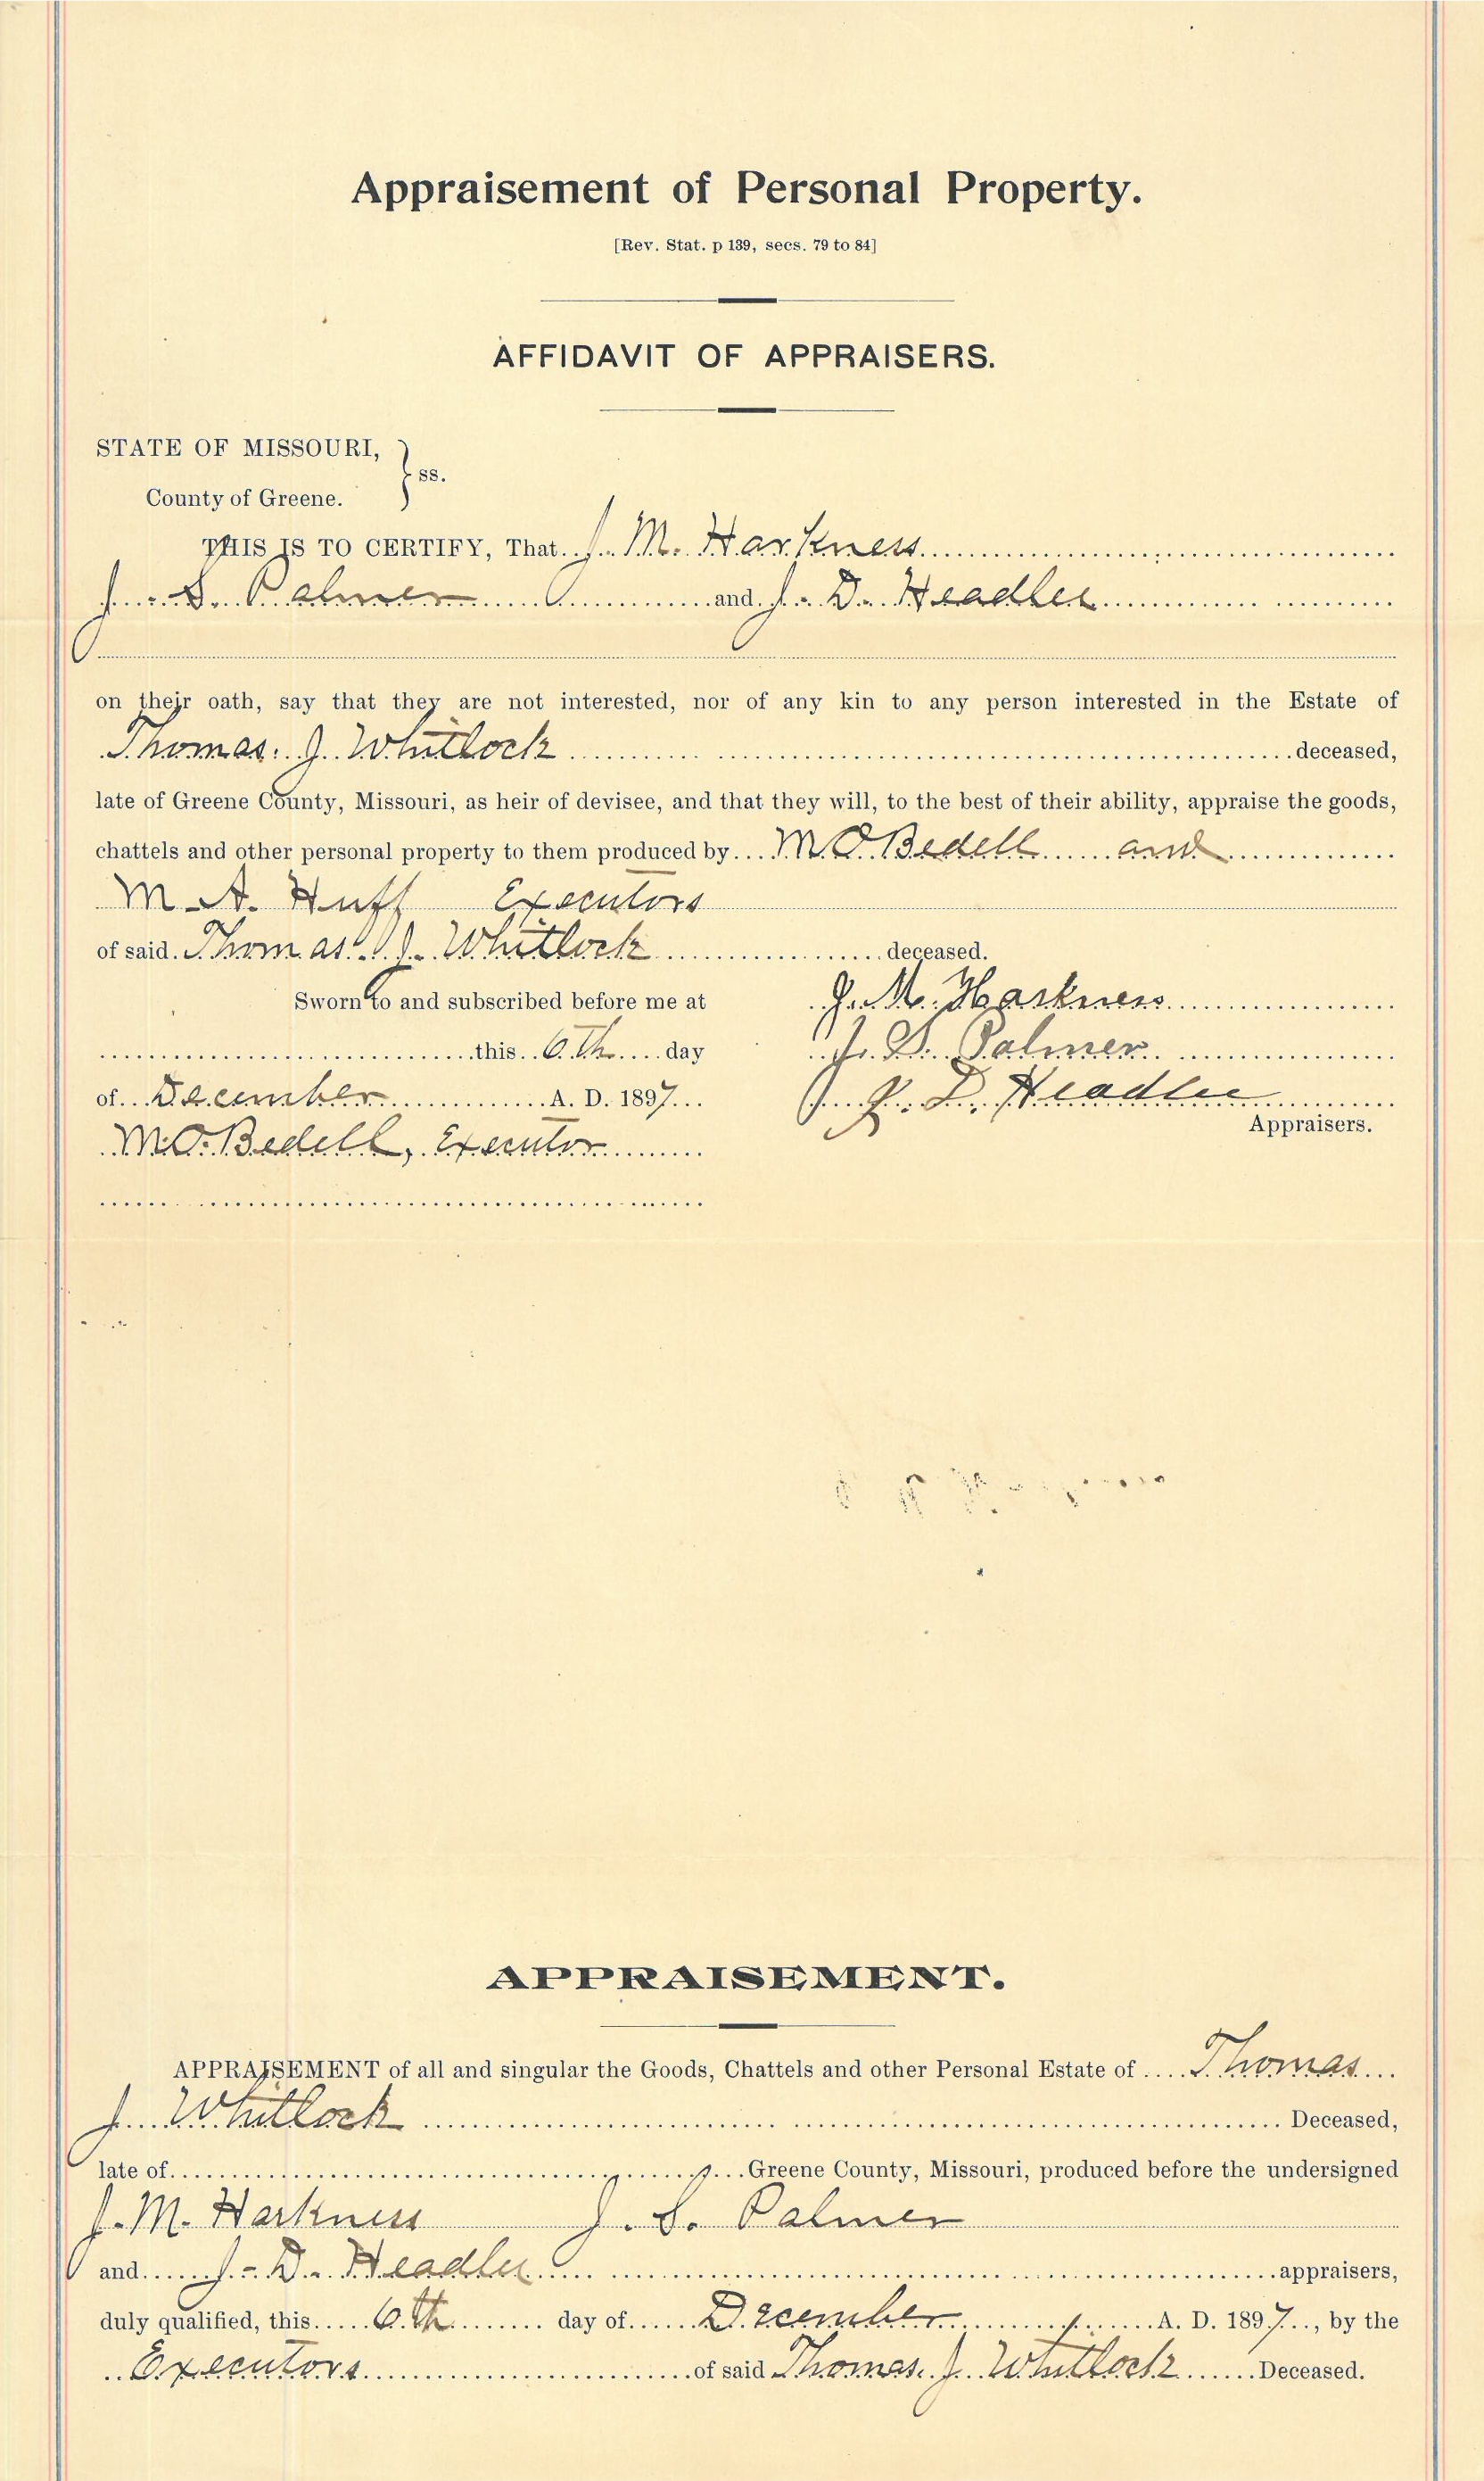 Appraisement of Personal Property.
[Rev. Stat. p 139, secs. 79 to 84]
AFFIDAVIT OF APPRAISERS.
STATE OF MISSOURI,
ss.
County of Greene.
THIS IS TO CERTIFY, That J. M. Harkness
J. S. Palmer and J. D. Headlee
on their oath, say that they are not interested, nor of any kin to any person interested in the Estate of
Thomas J. Whitlock deceased,
late of Greene County, Missouri, as heir of devisee, and that they will, to the best of their ability, appraise the goods,
chattels and other personal property to them produced by M. O. Bedell and
M. A. Huff Executors
of said Thomas J. Whitlock deceased.
Sworn to and subscribed before me at J. M. Harkness
this 6th day J. S. Palmer
of December A. D. 1897 J. D. Headlee
Appraisers.
M. O. Bedell, Executor
APPRAISEMENT.
APPRAISEMENT of all and singular the Goods, Chattels and other Personal Estate of Thomas
J. Whitlock Deceased,
late of Greene County, Missouri, produced before the undersigned
J. M. Harkness J. S. Palmer
and J. D. Headlee appraisers,
duly qualified, this 6th day of December A. D. 1897, by the
Executors of said Thomas J. Whitlock Deceased.